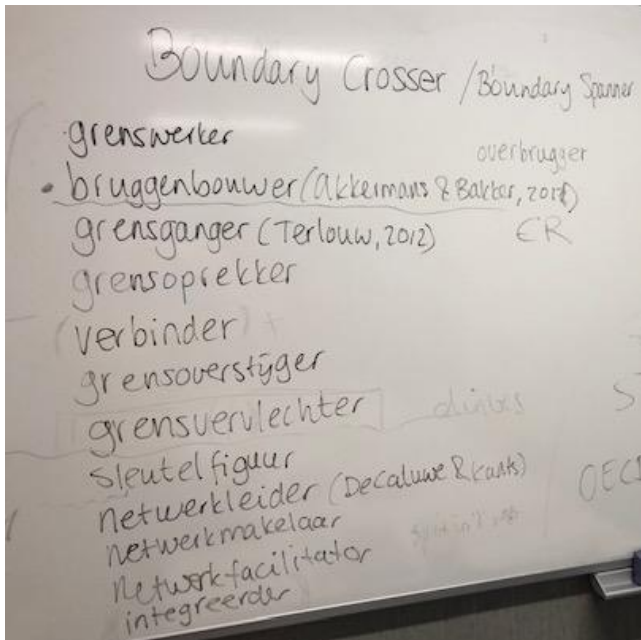 Boundary Crosser / Boundary Spanner
grenswerker
overbrugger
• bruggenbouwer (Akkermans & Bakker, 201)
grensganger (Terlouw, 2012) ER
grensoprekker
(verbinder) +
grensoverstijger
grensvervlechter
sleutelfiguur
netwerkleider (Decaluwe & Kants)
netwerkmakelaar
netwerkfacilitator
integreerder
OEC